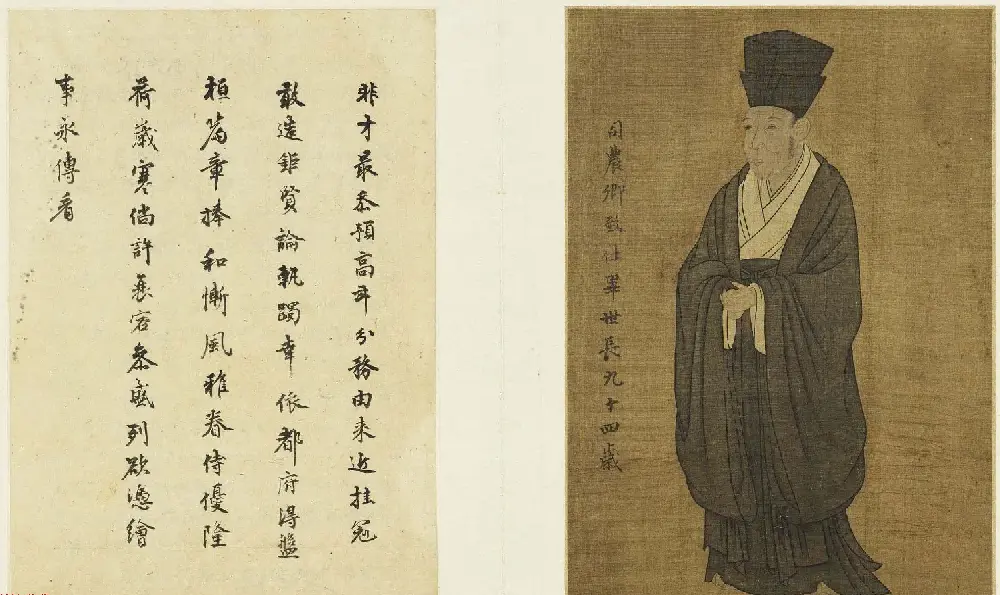 司農卿致仕畢世長九十四歲
非才最忝預高年分務由來近挂冠
敢造鉅賢論軌躅幸依都府得盤
桓篇章捧和慚風雅眷侍優隆
荷歲寒倘許衰容參盛列欲憑繪
事永傳看